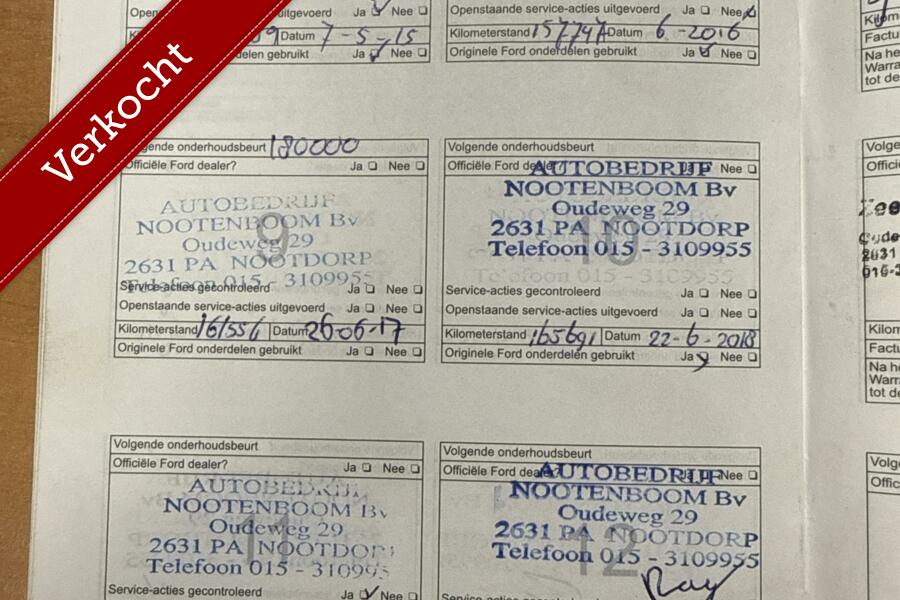 Verkocht
uitgevoerd Ja Nee
Datum 7-5-15
delen gebruikt Ja Nee
Openstaande service-acties uitgevoerd Ja Nee
Kilometerstand Datum 6 -2016
Originele Ford onderdelen gebruikt Ja Nee
Volgende onderhoudsbeurt 180000
Officiële Ford dealer? Ja Nee
9
AUTOBEDRIJF
NOOTENBOOM Bv
Oudeweg 29
2631 PA NOOTDORP
Telefoon 015 - 3109955
Service-acties gecontroleerd Ja Nee
Openstaande service-acties uitgevoerd Ja Nee
Kilometerstand 161556 Datum 26-06-17
Originele Ford onderdelen gebruikt Ja Nee
Volgende onderhoudsbeurt
Officiële Ford dealer? Ja Nee
10
AUTOBEDRIJF
NOOTENBOOM Bv
Oudeweg 29
2631 PA NOOTDORP
Telefoon 015 - 3109955
Service-acties gecontroleerd Ja Nee
Openstaande service-acties uitgevoerd Ja Nee
Kilometerstand 165691 Datum 22-6-2018
Originele Ford onderdelen gebruikt Ja Nee
Volgende onderhoudsbeurt
Officiële Ford dealer? Ja Nee
11
AUTOBEDRIJF
NOOTENBOOM Bv
Oudeweg 29
2631 PA NOOTDORP
Telefoon 015 - 310995
Service-acties gecontroleerd Ja Nee
Volgende onderhoudsbeurt
Officiële Ford dealer? Nee
12
AUTOBEDRIJF
NOOTENBOOM Bv
Oudeweg 29
2631 PA NOOTDORP
Telefoon 015 - 3109955
Kilom
Factu
Na he
Warra
tot de
Volge
Offici
2631
015-3
Kilom
Factu
Na he
Warra
tot de
Volg
Offic